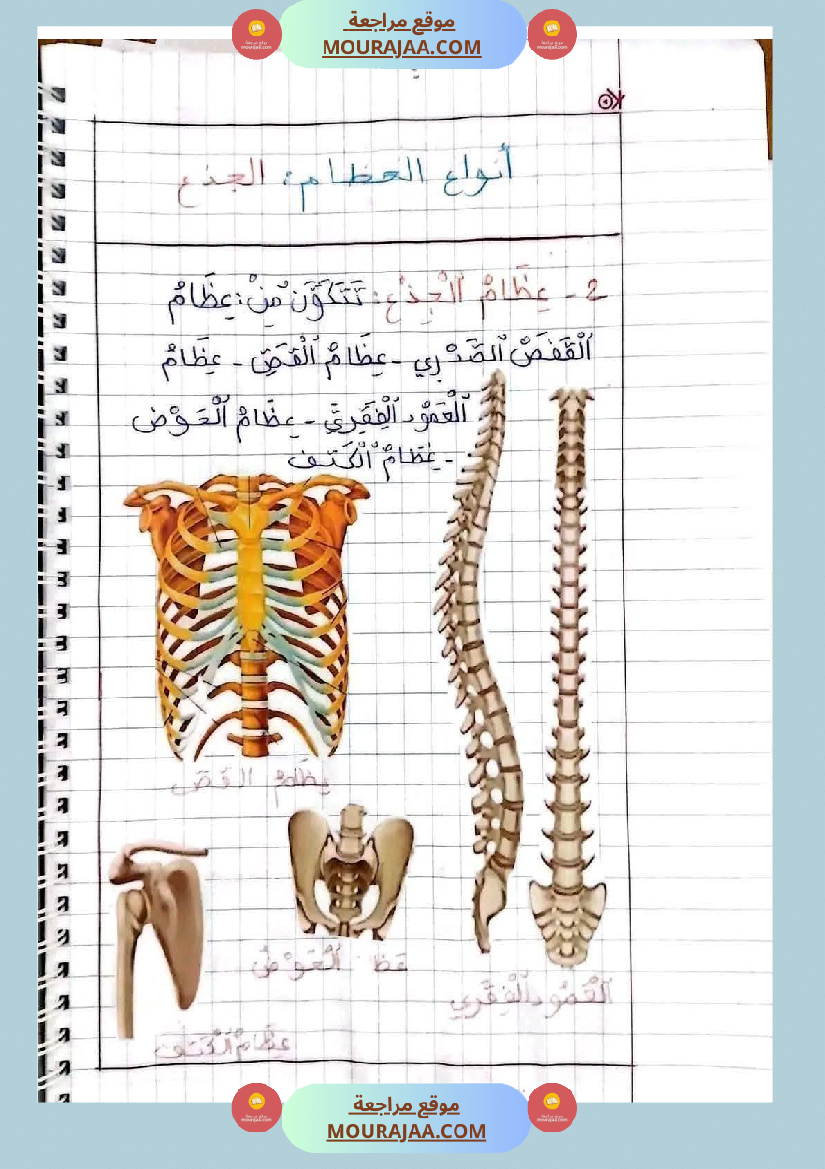 موقع مراجعة
MOURAJAA.COM
أنواع العظام: الجذع
2 - عِظَامُ الْجِذْع: تَتَكَوَّنُ مِنْ: عِظَامُ
الْقَفَصْ الصَّدْرِي - عِظَامُ الْقَصِّ - عِظَامُ
الْعَمُود الْفِقَرِيّ - عِظَامُ الْحَوْض
- عِظَامُ الْكَتِف
عظام القص
عظا الْحَوْض
الْعَمُود الْفِقَرِي
عِظَامُ الْكَتِف
موقع مراجعة
MOURAJAA.COM